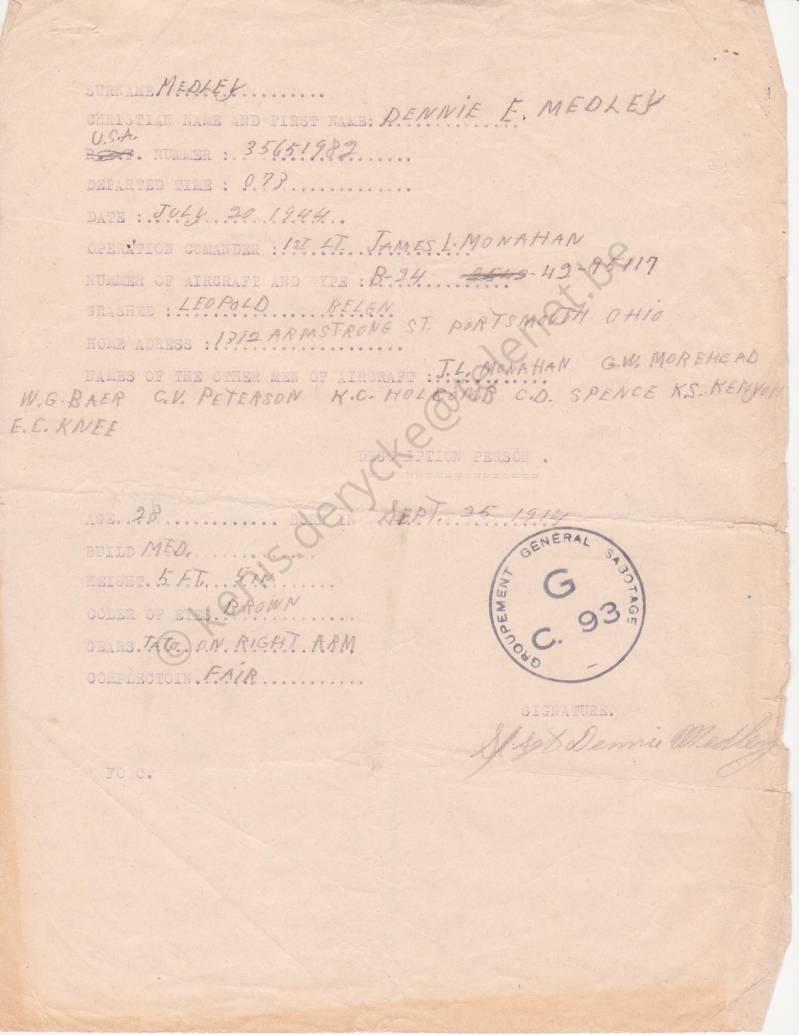 SURNAME MEDLEY..................
CHRISTIAN NAME AND FIRST NAME: DENNIE E. MEDLEY
U.S.A.
NUMMER : 35651982
DEPARTED TIME : 073
DATE : JULY 20 1944
OPERATION COMANDER : 1ST LT. JAMES L. MONAHAN
NUMMER OF AIRCRAFT AND TYPE : B-24 -42-95117
CRASHED : LEOPOLD BELGN
HOME ADRESS : 1312 ARMSTRONG ST. PORTSMOUTH OHIO
NAMES OF THE OTHER MEN OF AIRCRAFT : J.L. MONAHAN G.W. MOREHEAD
W.G. BAER C.V. PETERSON K.C. HOLCOMB C.D. SPENCE K.S. KENYON
E.C. KNEE
DESCRIPTION PERSON .
AGE. 28 ............ IN SEPT. 25 1914
BUILD MED.
HEIGHT. 5 FT. 5 IN
COLER OF EYES. BROWN
TATO. ON RIGHT ARM
COMPLECTOIN. FAIR
GROUPEMENT GENERAL SABOTAGE
G
C. 93
SIGNATURE.
S/Sgt Dennie Medley
© kenis.derycke@telenet.be